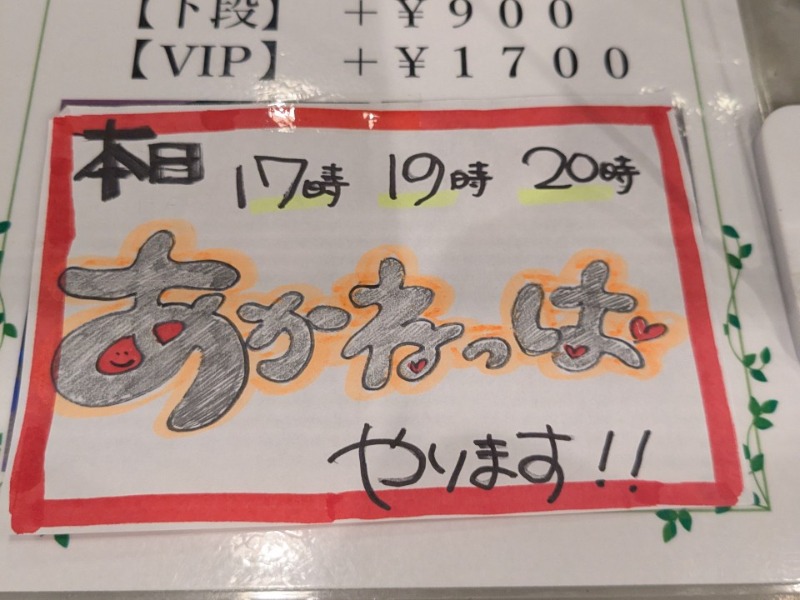 【下段】 +￥900
【VIP】 +￥1700
本日 17時 19時 20時
あかねっは
やります!!